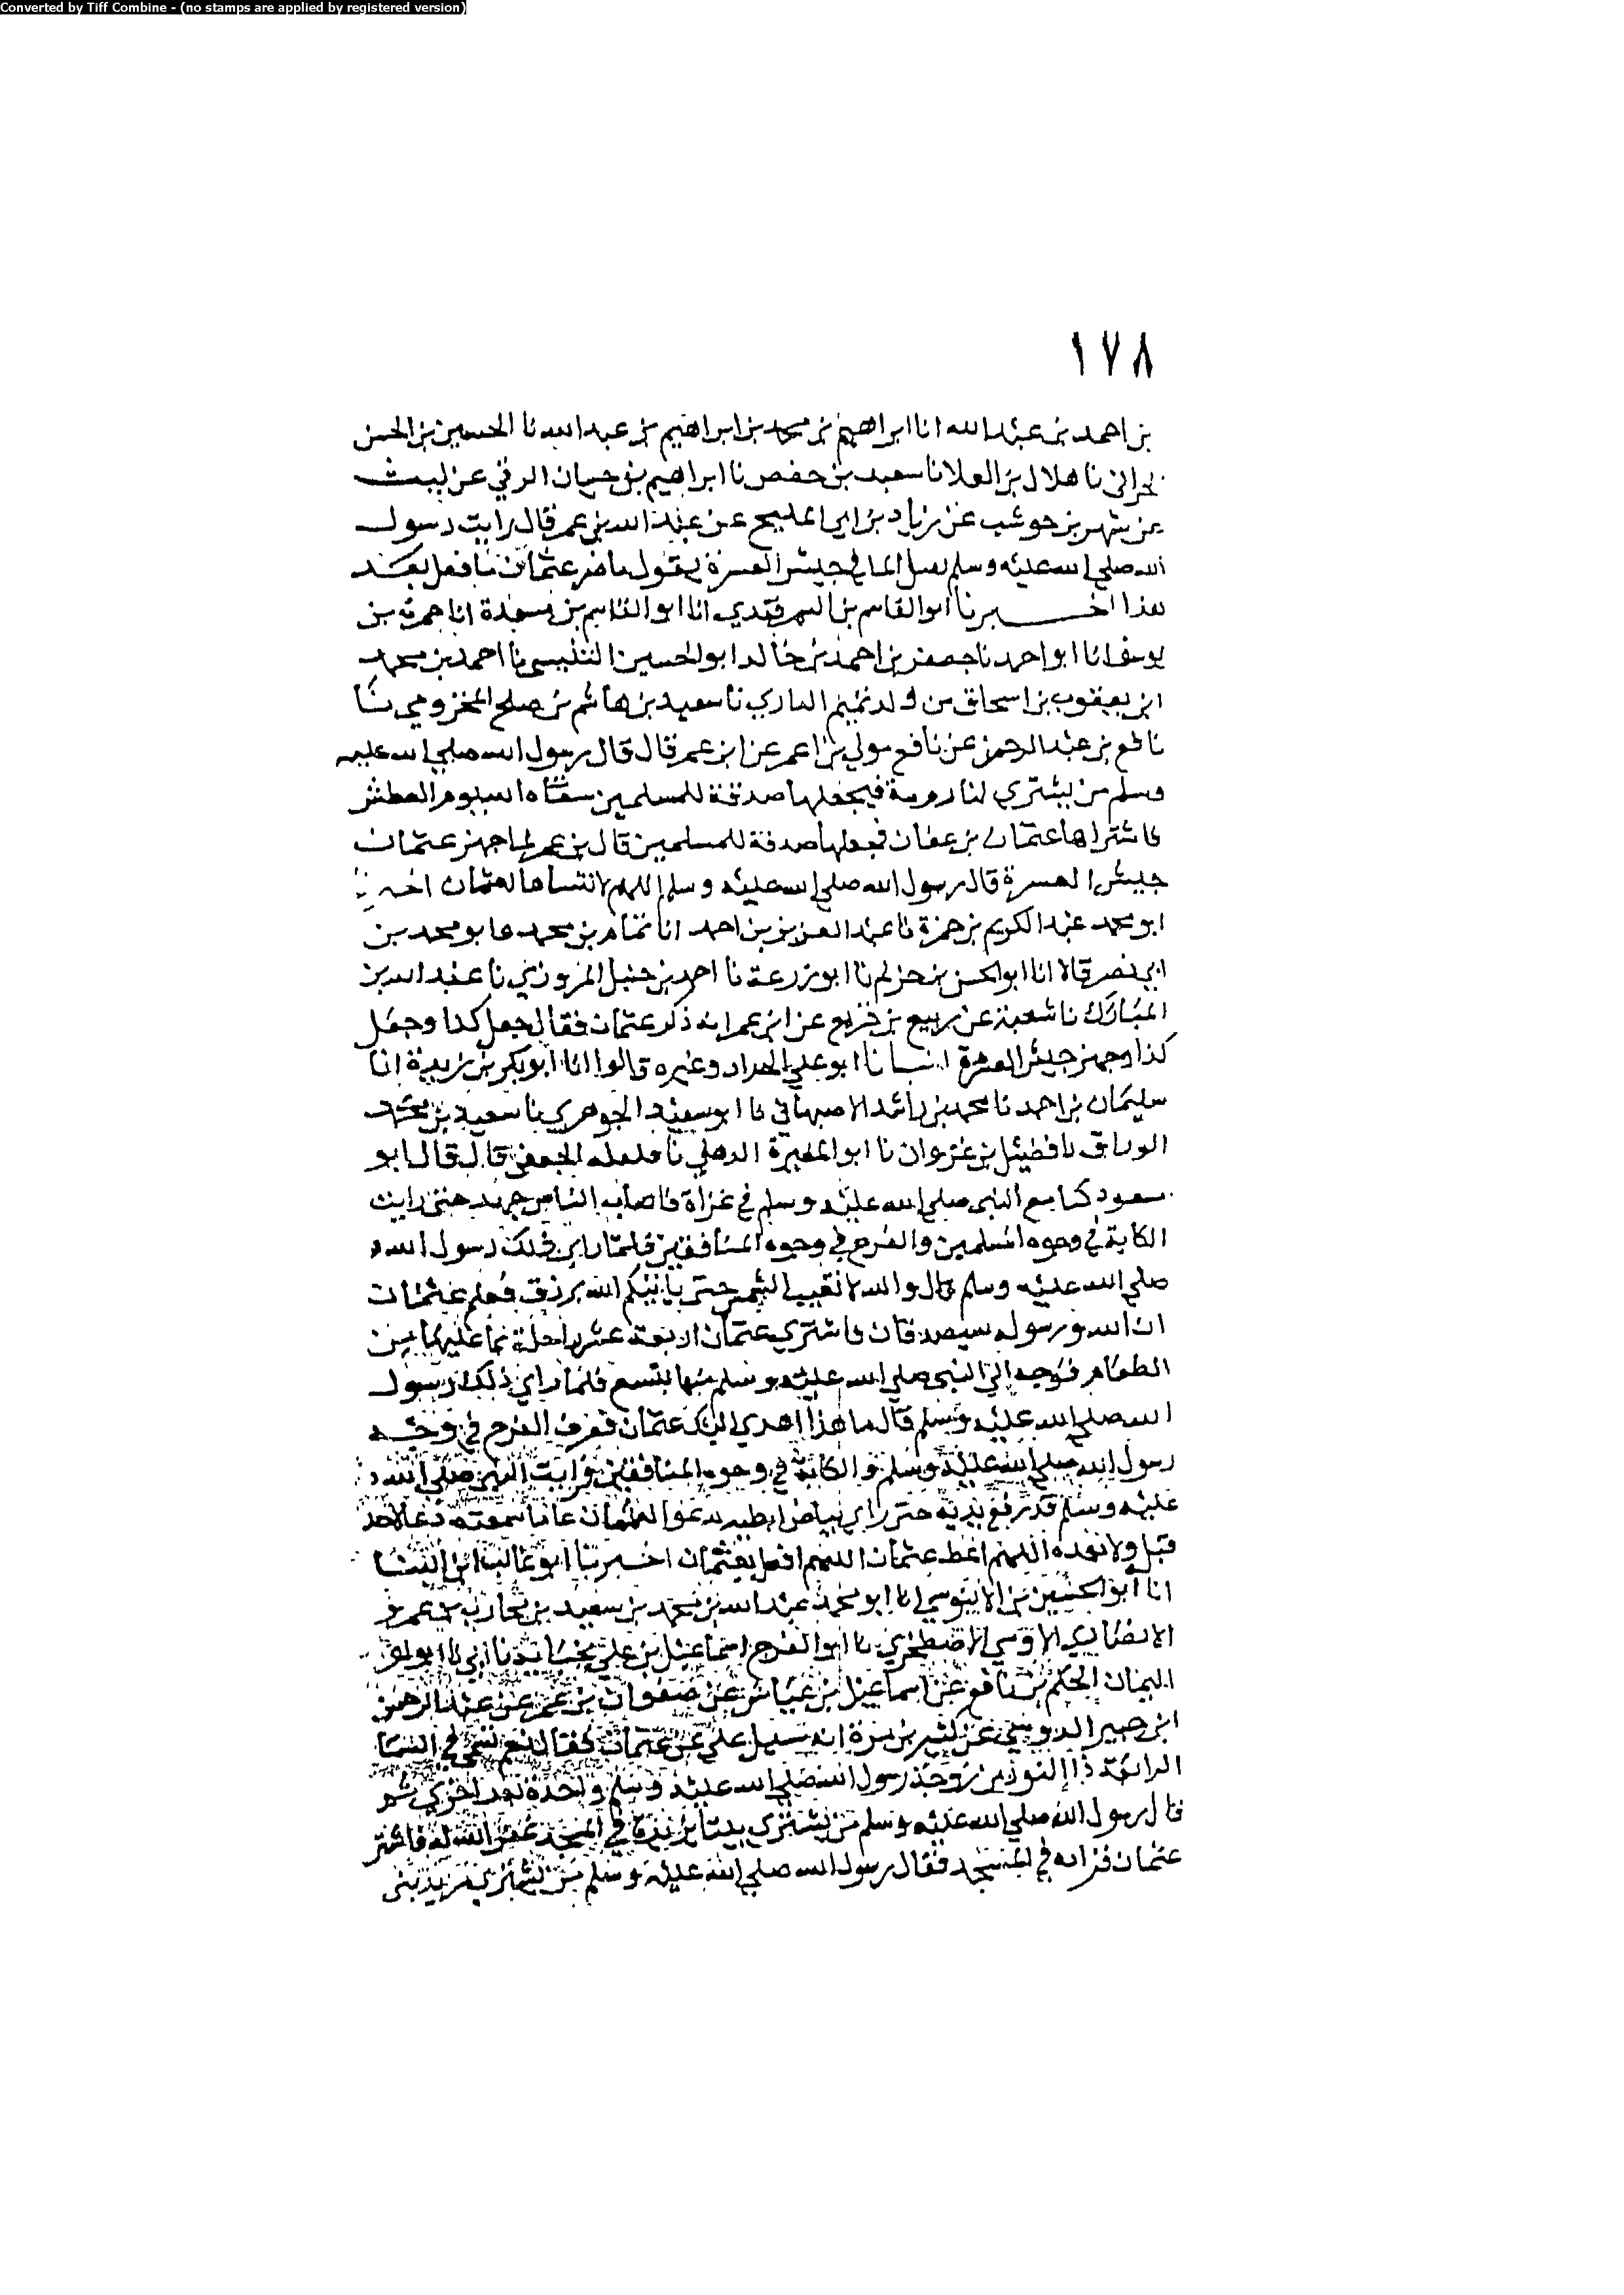 Converted by Tiff Combine - (no stamps are applied by registered version)
١٧٨
بن احمد بن عبد الله انا ابراهيم بن محمد بن ابراهيم بن عبد الله نا الحسين بن الحسن
نا هلال بن العلا نا سعيد بن حفص نا ابراهيم بن حيان الرقي عن ليث
عن شهر بن حوشب عن زياد بن ابي المليح عن عبد الله بن عمر قال رايت رسول
الله صلي الله عليه وسلم المال في جيش العسرة يقول ما ضر عثمان ما فعل بعد
هذا اخبرنا ابوالقاسم بن السمرقندي انا ابوالقاسم بن مسعدة انا حمزة بن
يوسف انا ابواحمد نا جعفر بن احمد بن خالد ابوالحسين التنيسي نا احمد بن محمد
ابن يعقوب بن اسحاق من ولد تميم الداري نا سعيد بن هاشم بن صلح المخزومي نا
نافع بن عبد الرحمن عن نافع مولي بن عمر عن ابن عمر قال قال رسول الله صلي الله عليه
وسلم من يشتري لنا رومة فيجعلها صدقة للمسلمين سقاه الله يوم العطش
فاشتراها عثمان بن عفان فجعلها صدقة للمسلمين قال بن عمر لما جهز عثمان
جيش العسرة قال رسول الله صلي الله عليه وسلم اللهم لا تنساها لعثمان اخبرنا
ابومحمد عبد الكريم بن حمزة نا عبد العزيز بن احمد انا تمام بن محمد وابو محمد بن
ابي نصر قالا انا ابوالحسن بن حزلم نا ابوزرعة نا احمد بن حنبل المروزي نا عبد الله بن
المبارك نا شعبة عن ربيع بن قزيع عن ابن عمر انه ذكر عثمان فقال جعل كذا وجعل
كذا وجهز جيش العسرة انبانا ابوعلي الحداد وغيره قالوا انا ابوبكر بن ريدة انا
سليمان بن احمد نا محمد بن راشد الاصبهاني نا ابوسعيد الجوهري نا سعيد بن محمد
الوراق نا فضيل بن غزوان نا ابو المغيرة الذهلي نا فلفله الجعفي قال قال ابو
مسعود كنا مع النبي صلي الله عليه وسلم في غزاة فاصاب الناس جهد حتي رايت
الكابة في وجوه المسلمين والفرح في وجوه المنافقين فلما راي ذلك رسول الله
صلي الله عليه وسلم قال والله لا تغيب الشمس حتي ياتيكم الله برزق فعلم عثمان
ان الله ورسوله سيصدقان فاشتري عثمان اربعة عشر راحلة بما عليها من
الطعام فوجه الي النبي صلي الله عليه وسلم منها بتسع فلما راي ذلك رسول
الله صلي الله عليه وسلم قال ما هذا اهدي اليك عثمان فعرف الفرح في وجه
رسول الله صلي الله عليه وسلم والكابة في وجوه المنافقين فرايت النبي صلي الله
عليه وسلم قد رفع يديه حتي راي بياض ابطيه يدعوا لعثمان دعا ما سمعته دعا لاحد
قبله ولا بعده اللهم اعط عثمان اللهم افعل بعثمان اخبرنا ابوغالب ابن البنا
انا ابوالحسين بن الابنوسي انا ابومحمد عبد الله بن محمد بن سعيد بن محارب بن عمرو
الانصاري الاوسي الاصطخري نا ابوالفرج اسماعيل بن علي نا ابي نا
اليمان الحكم بن نافع عن اسماعيل بن عياش عن صفوان بن عمرو عن عبد الرحمن
ابن جبير عن كثير بن مرة انه سيل علي عن عثمان فقال نعم سمي في السما
الرابعة ذا النورين زوجه رسول الله صلي الله عليه وسلم واحدة بعد اخري ثم
قال رسول الله صلي الله عليه وسلم من يشتري بيتا يزيده في المسجد غفر الله له فاشتر
عثمان فزاده في المسجد فقال رسول الله صلي الله عليه وسلم من يشتري مربد بني